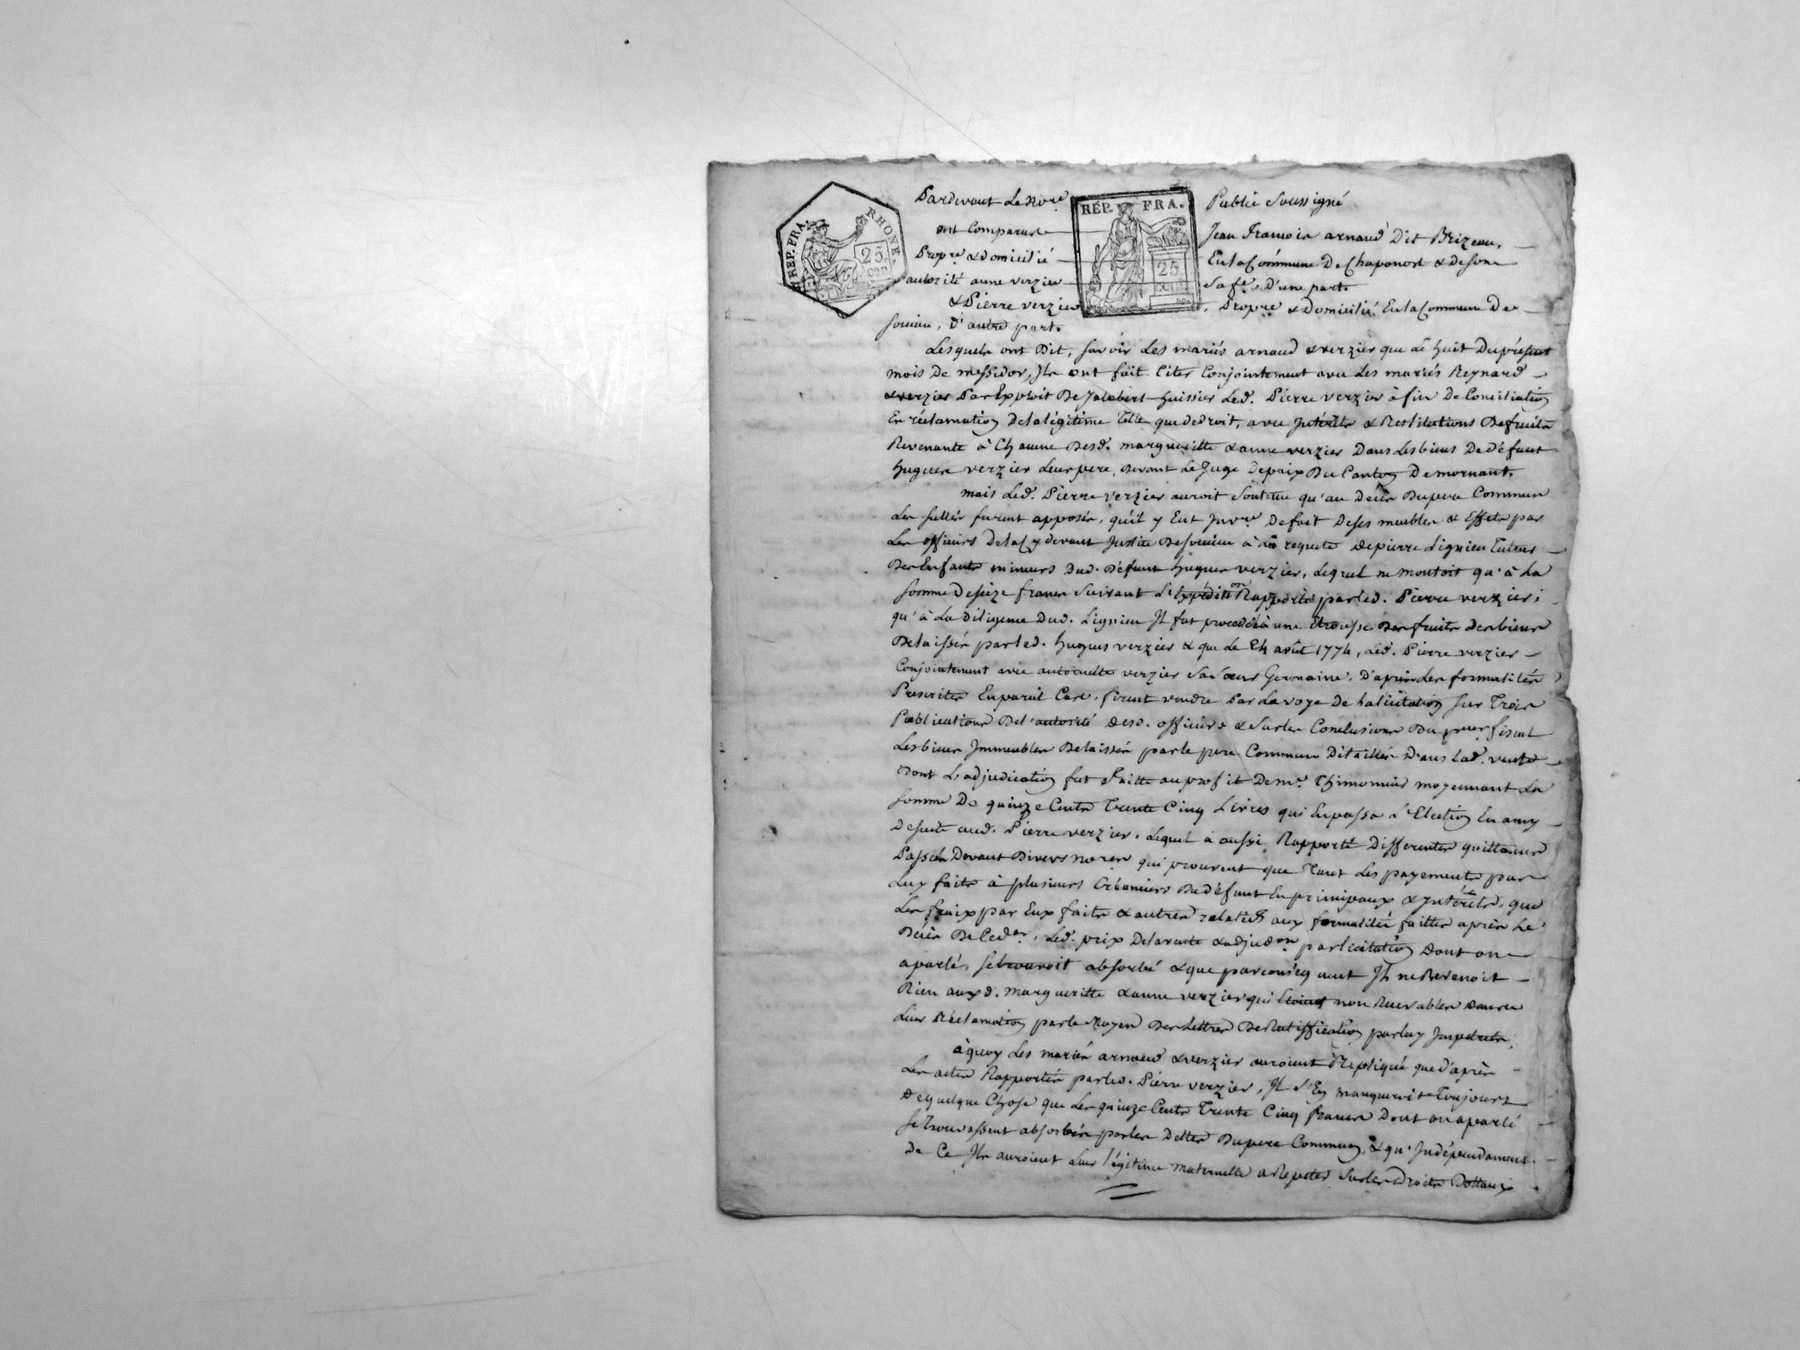 REP. FRA. RHONE
25. cen
REP. FRA.
25
Pardevant Le No.re Public Soussigné
ont Comparus Jean Francois arnaud Dit Brizeau,
Propre. & domicilié En la Commune De Chaponost & de son
autorité anne verzier Sa fe. D'une part.
& Pierre verzier Propre & Domicilié En la Commune De
soucieu, D'autre part.
Lesquels ont Dit, savoir Les mariés arnaud & verzier que Le huit Du présent
mois De messidor, Ils ont fait Citer Conjointement avec Les mariés Reynard
& verzier Par Exploit De Jalabert huissier Led. Pierre verzier à fin De Conciliation
En réclamation De la légitime telle que de droit, avec Intérêts & Restitutions De fruits
Revenante à Chacune Desd. marguerite & anne verzier Dans Les biens De Défunt
hugues verzier Leur pere, Devant Le Juge De paix Du Canton De mornant.
mais Led. Pierre verzier auroit Soutenu qu'au Decès Du pere Commun
Les scellés furent apposés, qu'il y Eut Inv.re De fait De ses meubles & Effets par
Les officiers De la Cy devant Justice De soucieu à La requete De pierre Lignieu tuteur
Des Enfants mineurs Dud. Défunt hugues verzier, Lequel ne montoit qu'à La
somme De seize francs suivant L'expédition Rapportée par led. Pierre verzier;
qu'à La Diligence Dud. Lignieu Il fut procédé à une Etrousse Des fruits Des biens
Delaissés par led. hugues verzier & que Le 24 août 1774, Led. Pierre verzier
Conjointement avec verzier Sa soeur Germaine, D'après Les formalités
Prescrites En pareil Cas, firent vendre Par La voye De La licitation sur Trois
Publications De L'autorité Desd. officiers & Sur les Conclusions Du p.reur fiscal
Les biens Immeubles Delaissés par le pere Commun Détaillés Dans Lad. vente
Dont L'adjudication fut Faitte au profit De me. Thimonnier moyennant La
somme De quinze Cents Trente Cinq Livres qui En passa L'Election En amy
De suite aud. Pierre verzier, Lequel à aussi Rapporté Differentes quittances
Passées Devant Divers no.res qui prouvent que Tant Les payements par
Luy faits à plusieurs Créanciers Du défunt En principaux & Intérêts, que
Les fraix par Eux faits & autres relatifs aux formalités faittes après Le
Décès De Ced.er, Led. prix De La vente & adjud.on par licitation Dont on
a parlé, se trouvoit absorbé & que par conséquent Il ne Revenoit
Rien auxd. marguerite & anne verzier qui Etoient non Recevables Dans
Leur Réclamation par le Moyen Des Lettres De Ratiffication par luy Impetrées,
à quoy Les mariés arnaud & verzier auroient Répliqué que D'après
Les actes Rapportés par led. Pierre verzier, Il S'En manqueroit Toujours
De quelque Chose que Les quinze Cents Trente Cinq francs Dont on a parlé
se trouvassent absorbés par les Dettes Du pere Commun, & qu'Indépendament
De Ce Ils auroient Leur légitime maternelle a Répéter Sur les Droits Dottaux